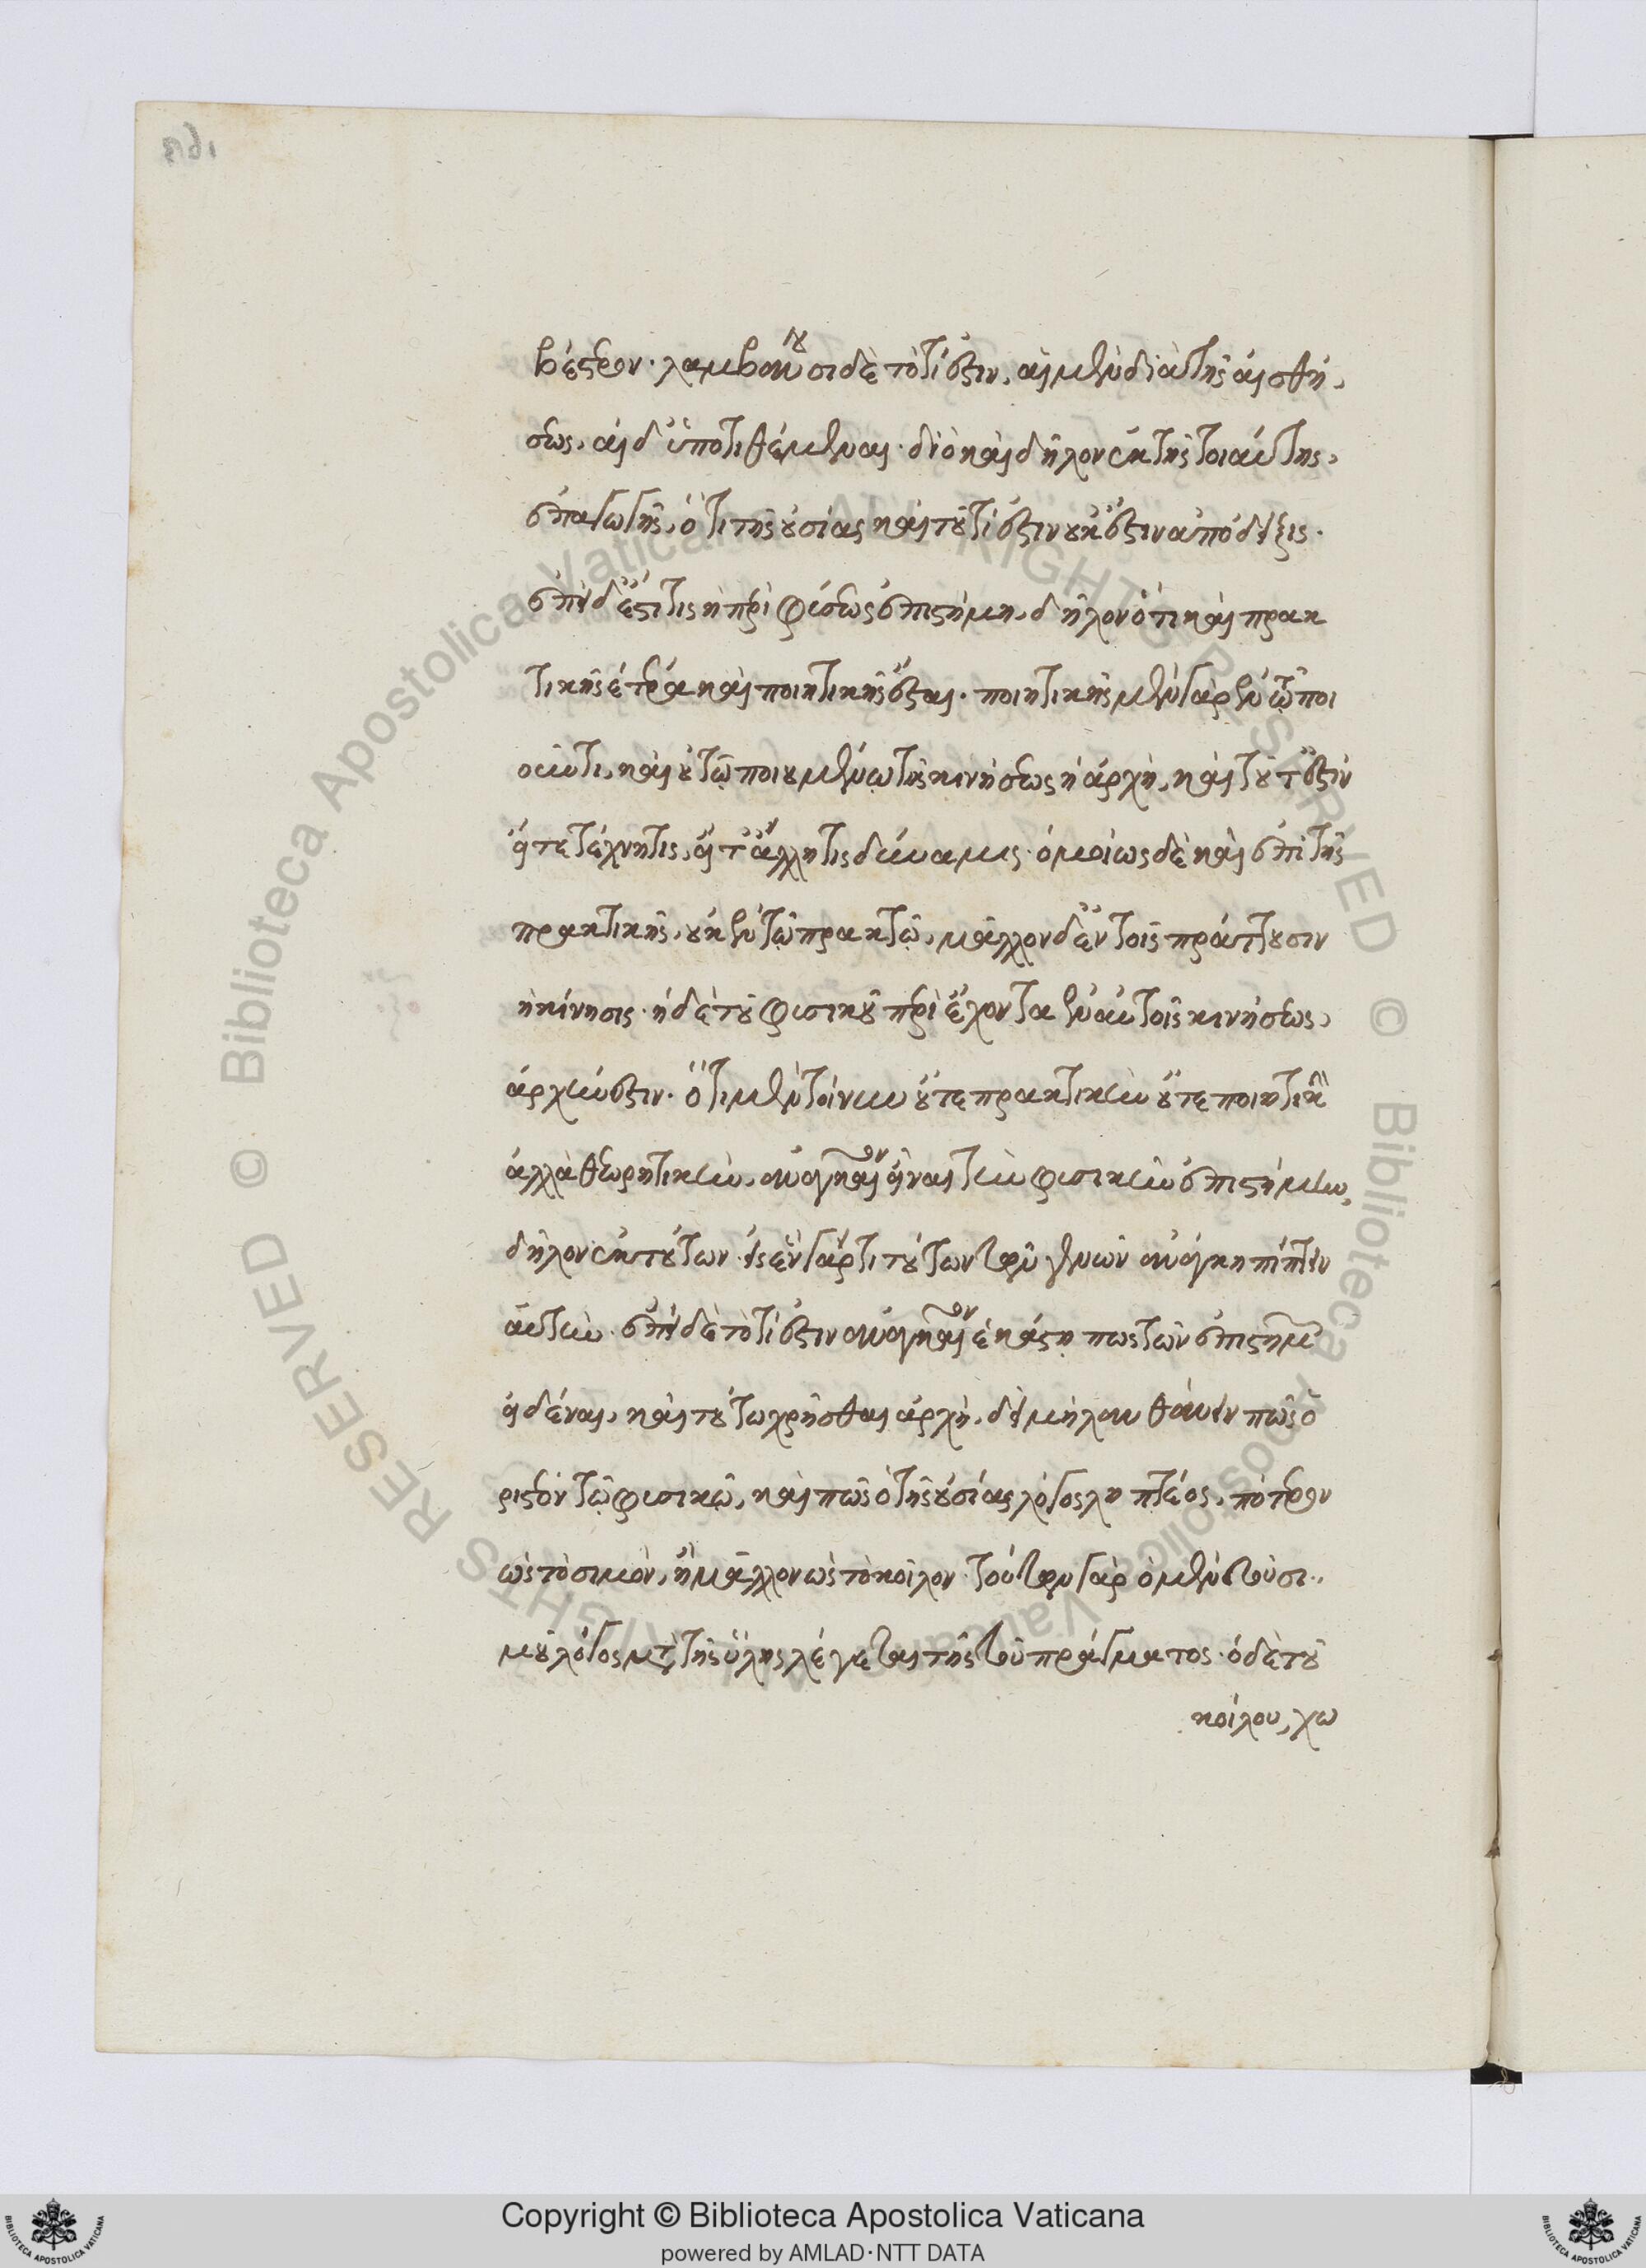 βέστερον· λαμβάνουσι δὲ τὸ τί ἐστιν, αἱ μὲν διὰ τῆς αἰσθή,
σεως, αἱ δ' ὑποτιθέμεναι· διὸ καὶ δῆλον ἐκ τῆς τοιαύτης,
ἐπαγωγῆς, ὅτι τῆς οὐσίας καὶ τοῦ τί ἐστιν οὐκ ἔστιν ἀπόδειξις.
ἐπεὶ δ' ἔστι τις ἡ περὶ φύσεως ἐπιστήμη, δῆλον ὅτι καὶ πρακ
τικῆς ἑτέρα καὶ ποιητικῆς ἔσται. ποιητικῆς μὲν γὰρ ἐν τῷ ποι
οῦντι, καὶ οὐ τῷ ποιουμένῳ τῆς κινήσεως ἡ ἀρχή, καὶ τοῦτ' ἔστιν
εἴτε τέχνη τις, εἴτ' ἄλλη τις δύναμις· ὁμοίως δὲ καὶ ἐπὶ τῆς
πρακτικῆς, οὐκ ἐν τῷ πρακτῷ, μᾶλλον δ' ἐν τοῖς πράττουσιν
ἡ κίνησις· ἡ δὲ τοῦ φυσικοῦ περὶ ἔχοντα ἐν αὑτοῖς κινήσεως,
ἀρχήν ἐστιν. ὅτι μὲν τοίνυν οὔτε πρακτικὴν οὔτε ποιητικὴν
ἀλλὰ θεωρητικήν, ἀναγκαῖον εἶναι τὴν φυσικὴν ἐπιστήμην,
δῆλον ἐκ τούτων· εἰς ἓν γάρ τι τούτων τῶν γενῶν ἀνάγκη πίπτειν
αὐτήν. ἐπεὶ δὲ τὸ τί ἐστιν ἀναγκαῖον ἑκάστῃ πως τῶν ἐπιστημῶν
εἰδέναι, καὶ τούτῳ χρῆσθαι ἀρχῇ, δεῖ μὴ λανθάνειν πῶς ὁ
ριστέον τῷ φυσικῷ, καὶ πῶς ὁ τῆς οὐσίας λόγος ληπτέος, πότερον
ὡς τὸ σιμόν, ἢ μᾶλλον ὡς τὸ κοῖλον· τούτων γὰρ ὁ μὲν τοῦ σι..
μοῦ λόγος μετὰ τῆς ὕλης λέγεται τῆς τοῦ πράγματος· ὁ δὲ τοῦ
κοίλου, χω
Copyright © Biblioteca Apostolica Vaticana
powered by AMLAD·NTT DATA